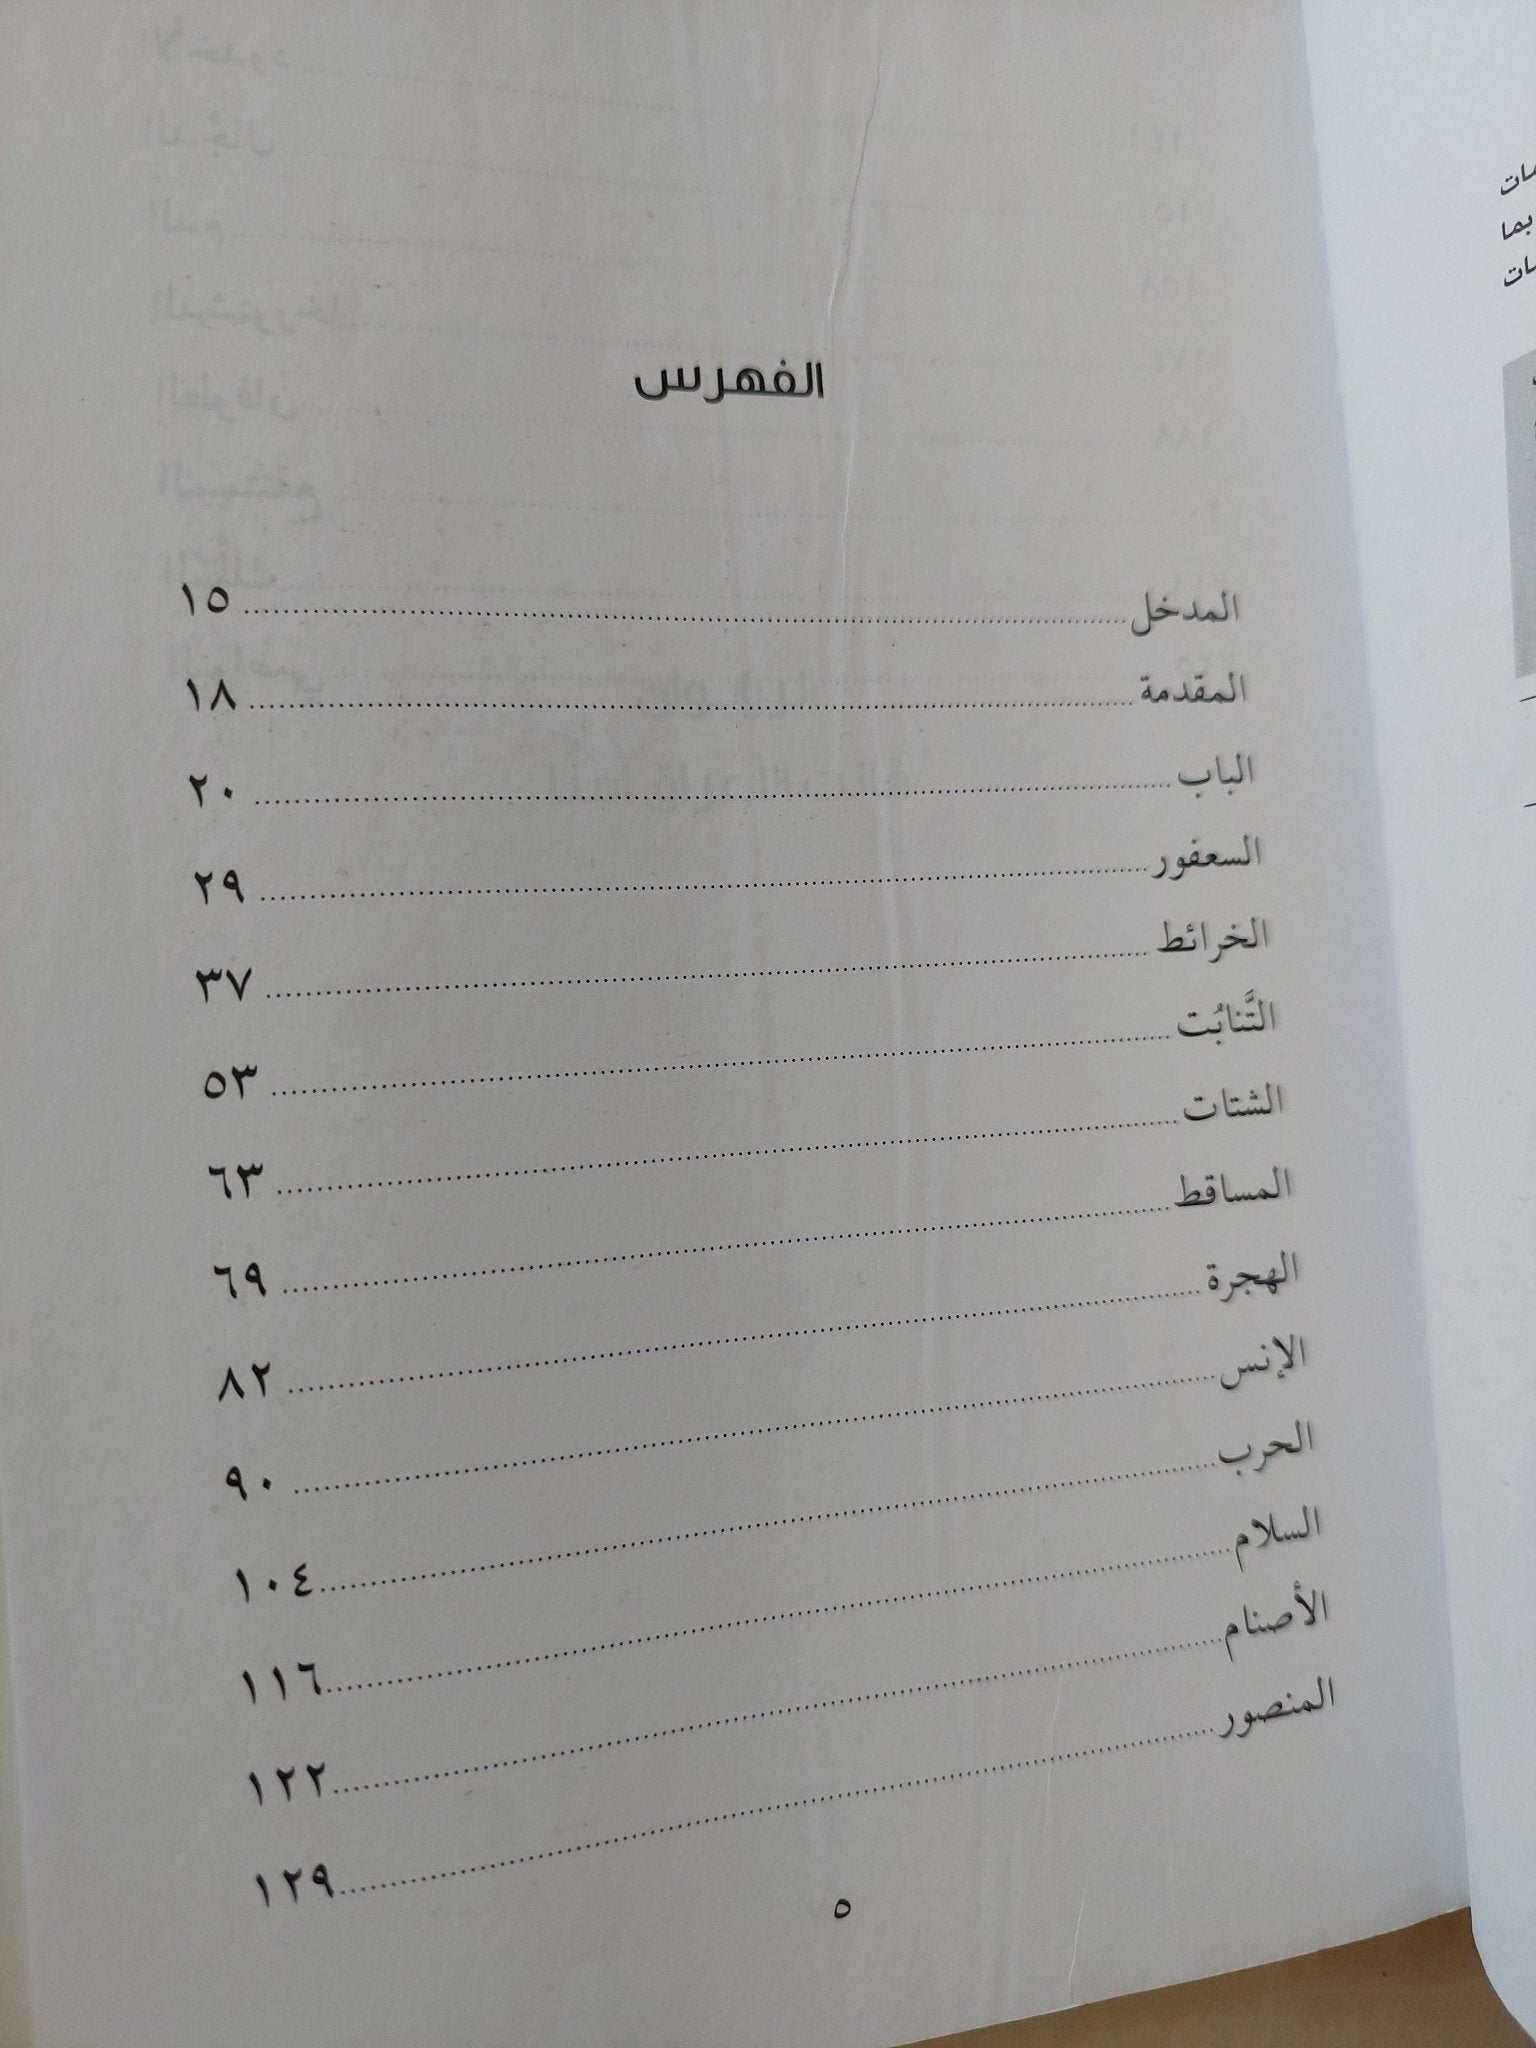 الفهرس
المدخل ١٥
المقدمة ١٨
الباب ٢٠
السعفور ٢٩
الخرائط ٣٧
التَّنابُت ٥٣
الشتات ٦٣
المساقط ٦٩
الهجرة ٨٢
الإنس ٩٠
الحرب ١٠٤
السلام ١١٦
الأصنام ١٢٢
المنصور ١٢٩
٥
بما